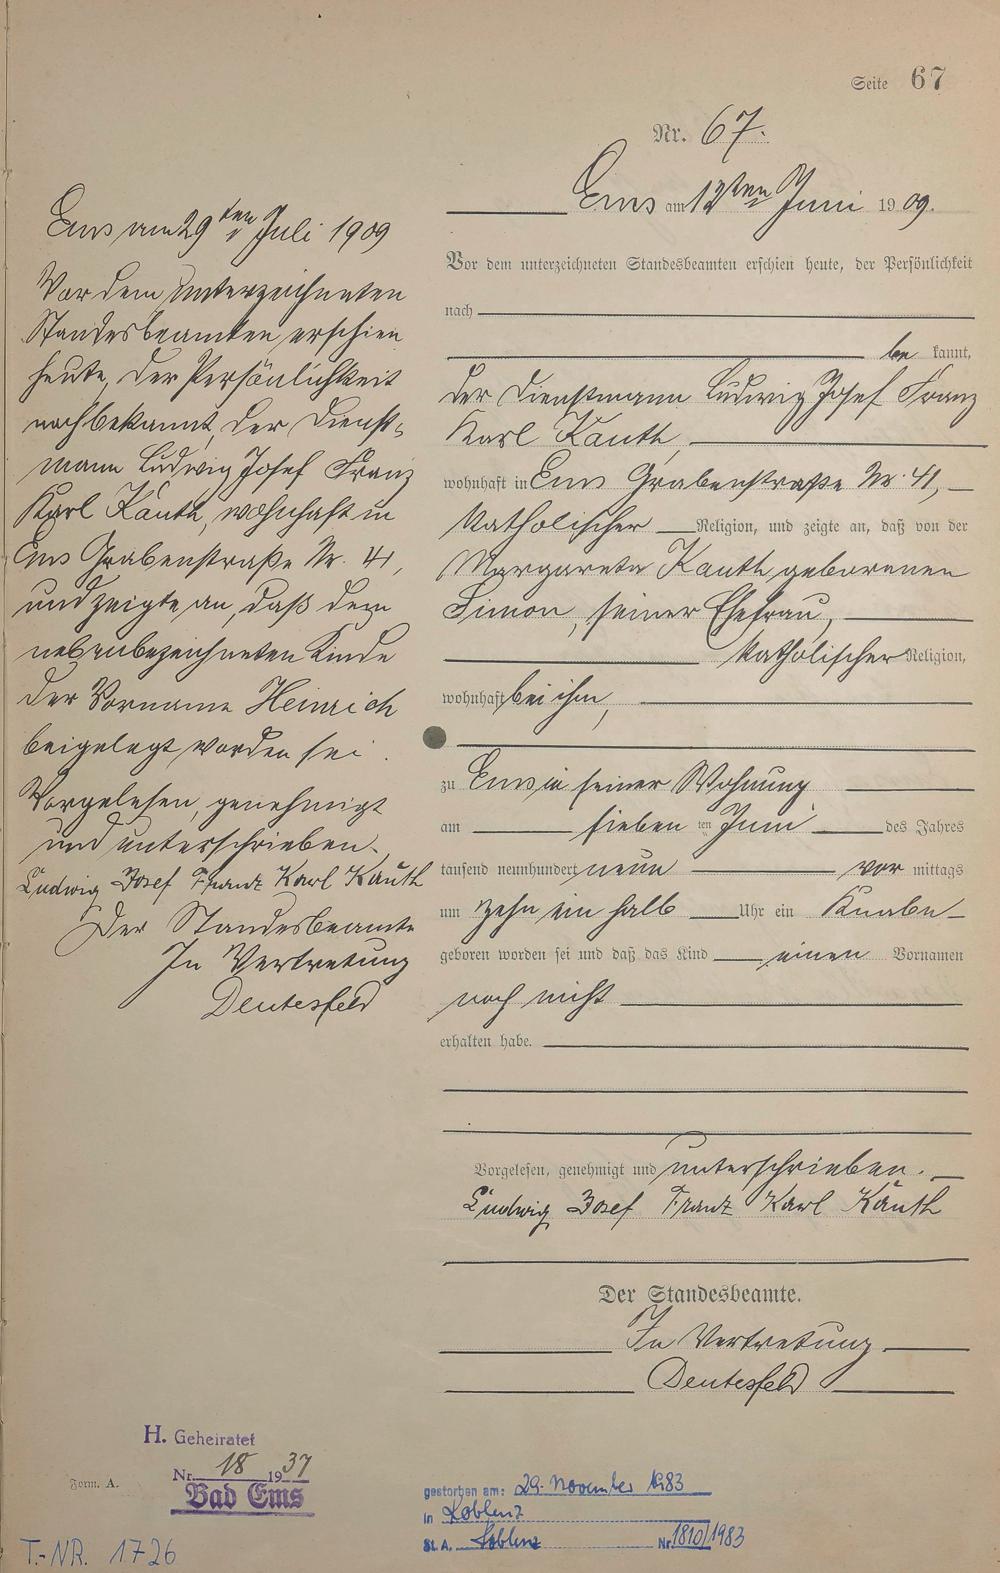 Seite 67
Nr. 67.
Ems am 12ten Juni 1909.
Vor dem unterzeichneten Standesbeamten erschien heute, der Persönlichkeit
nach
be kannt,
der Dienstmann Ludwig Josef Franz
Karl Kauth,
wohnhaft in Ems Grabenstraße Nr. 41,
katholischer Religion, und zeigte an, daß von der
Margareta Kauth geborenen
Simon, seiner Ehefrau,
katholischer Religion,
wohnhaft bei ihm,
zu Ems in seiner Wohnung
am sieben ten Juni des Jahres
tausend neunhundert neun vor mittags
um zehn ein halb Uhr ein Knabe
geboren worden sei und daß das Kind einen Vornamen
noch nicht
erhalten habe.
Vorgelesen, genehmigt und unterschrieben.
Ludwig Josef Franz Karl Kauth
Der Standesbeamte.
In Vertretung
Deutesfeld
Ems am 29ten Juli 1909
Vor dem unterzeichneten
Standesbeamten erschien
heute, der Persönlichkeit
nach bekannt, der Dienst-
mann Ludwig Josef Franz
Karl Kauth, wohnhaft in
Ems Grabenstraße Nr. 41,
und zeigte an, daß dem
nebenbezeichneten Kinde
der Vorname Heinrich
beigelegt worden sei.
Vorgelesen, genehmigt
und unterschrieben.
Ludwig Josef Franz Karl Kauth
Der Standesbeamte
In Vertretung
Deutesfeld
H. Geheiratet
Nr. 18 1937
Bad Ems
Form. A.
T.-NR. 1726
gestorben am: 29. November 1983
in Koblenz
St. A. Koblenz Nr. 1810/1983